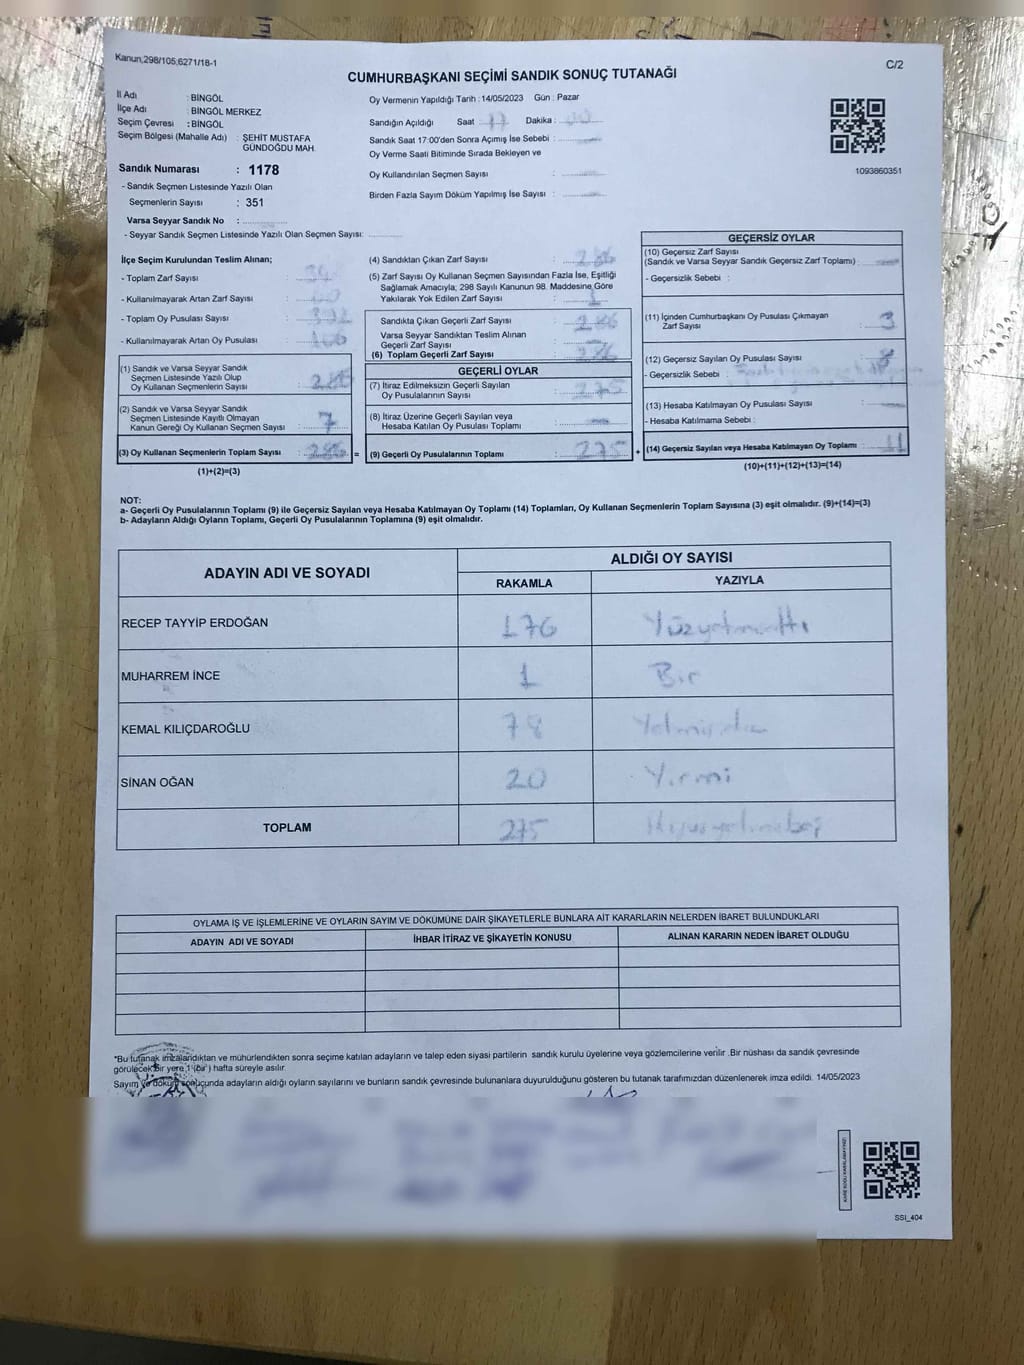 Kanun,298/105,6271/18-1
C/2
CUMHURBAŞKANI SEÇİMİ SANDIK SONUÇ TUTANAĞI
İl Adı : BİNGÖL
İlçe Adı : BİNGÖL MERKEZ
Seçim Çevresi : BİNGÖL
Seçim Bölgesi (Mahalle Adı) : ŞEHİT MUSTAFA
GÜNDOĞDU MAH.
Sandık Numarası : 1178
- Sandık Seçmen Listesinde Yazılı Olan
Seçmenlerin Sayısı : 351
Varsa Seyyar Sandık No :
- Seyyar Sandık Seçmen Listesinde Yazılı Olan Seçmen Sayısı:
Oy Vermenin Yapıldığı Tarih : 14/05/2023 Gün : Pazar
Sandığın Açıldığı Saat 17 Dakika :
Sandık Saat 17:00'den Sonra Açımış İse Sebebi :
Oy Verme Saati Bitiminde Sırada Bekleyen ve
Oy Kullandırılan Seçmen Sayısı :
Birden Fazla Sayım Döküm Yapılmış İse Sayısı :
1093860351
İlçe Seçim Kurulundan Teslim Alınan;
- Toplam Zarf Sayısı :
- Kullanılmayarak Artan Zarf Sayısı :
- Toplam Oy Pusulası Sayısı :
- Kullanılmayarak Artan Oy Pusulası :
(1) Sandık ve Varsa Seyyar Sandık
Seçmen Listesinde Yazılı Olup
Oy Kullanan Seçmenlerin Sayısı :
(2) Sandık ve Varsa Seyyar Sandık
Seçmen Listesinde Kayıtlı Olmayan
Kanun Gereği Oy Kullanan Seçmen Sayısı : 7
(3) Oy Kullanan Seçmenlerin Toplam Sayısı : 286 =
(1)+(2)=(3)
(4) Sandıktan Çıkan Zarf Sayısı : 286
(5) Zarf Sayısı Oy Kullanan Seçmen Sayısından Fazla İse, Eşitliği
Sağlamak Amacıyla; 298 Sayılı Kanunun 98. Maddesine Göre
Yakılarak Yok Edilen Zarf Sayısı :
Sandıkta Çıkan Geçerli Zarf Sayısı : 286
Varsa Seyyar Sandıktan Teslim Alınan
Geçerli Zarf Sayısı :
(6) Toplam Geçerli Zarf Sayısı : 286
GEÇERLİ OYLAR
(7) İtiraz Edilmeksizin Geçerli Sayılan
Oy Pusulalarının Sayısı : 275
(8) İtiraz Üzerine Geçerli Sayılan veya
Hesaba Katılan Oy Pusulası Toplamı :
(9) Geçerli Oy Pusulalarının Toplamı : 275 +
GEÇERSİZ OYLAR
(10) Geçersiz Zarf Sayısı
(Sandık ve Varsa Seyyar Sandık Geçersiz Zarf Toplamı) :
- Geçersizlik Sebebi :
(11) İçinden Cumhurbaşkanı Oy Pusulası Çıkmayan
Zarf Sayısı : 3
(12) Geçersiz Sayılan Oy Pusulası Sayısı : 8
- Geçersizlik Sebebi :
(13) Hesaba Katılmayan Oy Pusulası Sayısı :
- Hesaba Katılmama Sebebi :
(14) Geçersiz Sayılan veya Hesaba Katılmayan Oy Toplamı : 11
(10)+(11)+(12)+(13)=(14)
NOT:
a- Geçerli Oy Pusulalarının Toplamı (9) ile Geçersiz Sayılan veya Hesaba Katılmayan Oy Toplamı (14) Toplamları, Oy Kullanan Seçmenlerin Toplam Sayısına (3) eşit olmalıdır. (9)+(14)=(3)
b- Adayların Aldığı Oyların Toplamı, Geçerli Oy Pusulalarının Toplamına (9) eşit olmalıdır.
ADAYIN ADI VE SOYADI
ALDIĞI OY SAYISI
RAKAMLA YAZIYLA
RECEP TAYYİP ERDOĞAN 176 Yüzyetmişaltı
MUHARREM İNCE 1 Bir
KEMAL KILIÇDAROĞLU 78 Yetmişsekiz
SİNAN OĞAN 20 Yirmi
TOPLAM 275 İkiyüzyetmişbeş
OYLAMA İŞ VE İŞLEMLERİNE VE OYLARIN SAYIM VE DÖKÜMÜNE DAİR ŞİKAYETLERLE BUNLARA AİT KARARLARIN NELERDEN İBARET BULUNDUKLARI
ADAYIN ADI VE SOYADI İHBAR İTİRAZ VE ŞİKAYETİN KONUSU ALINAN KARARIN NEDEN İBARET OLDUĞU
*Bu tutanak imzalandıktan ve mühürlendikten sonra seçime katılan adayların ve talep eden siyasi partilerin sandık kurulu üyelerine ve gözlemcilerine verilir .Bir nüshası da sandık çevresinde
görülecek bir yere 1 (bir ) hafta süreyle asılır.
Sayım ve döküm sonucunda adayların aldığı oyların sayılarını ve bunların sandık çevresinde bulunanlara duyurulduğunu gösteren bu tutanak tarafımızdan düzenlenerek imza edildi. 14/05/2023
KARE KODU KARALAMAYINIZ!
SSI_404